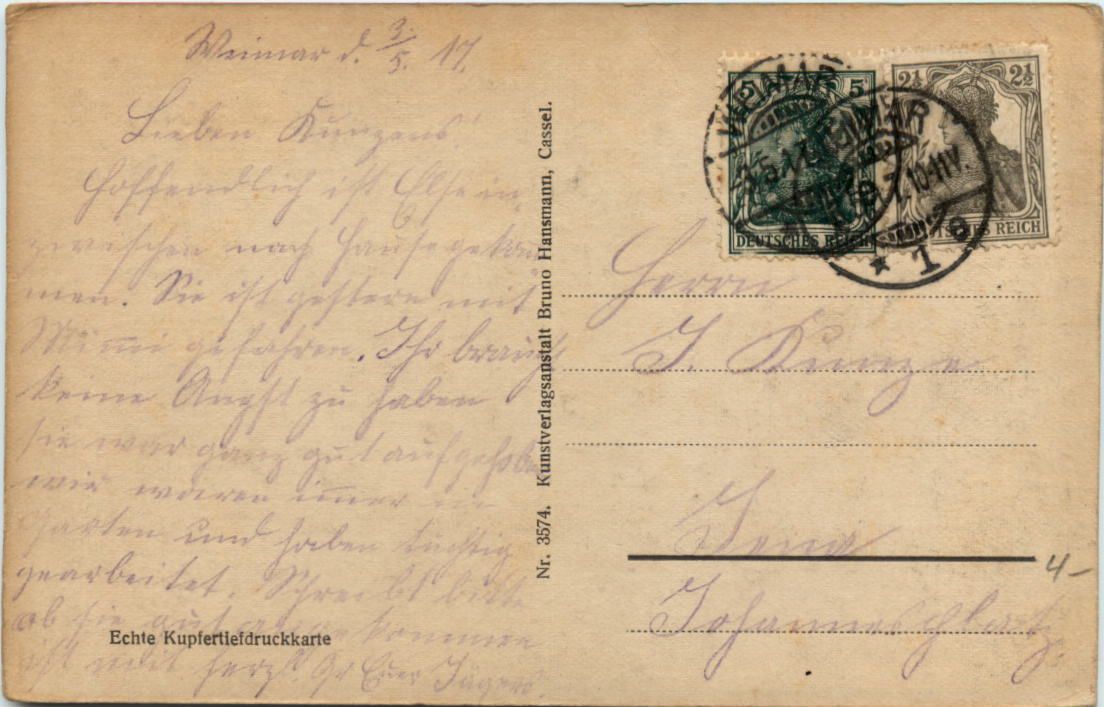 Weimar d. 3./5. 17.
Lieben Kunzens!
Hoffendlich ist Else in
zwischen nach Hause gekom
men. Sie ist gestern mit
Mimi gefahren. Ihr braucht
keine Angst zu haben
sie war ganz gut aufgehoben
wir waren imer im
Garten und haben tüchtig
gearbeitet. Schreibt bitte
ob sie gut angekommen
ist mit herzl. Gr Euer Jägers.
Echte Kupfertiefdruckkarte
Nr. 3574. Kunstverlagsanstalt Bruno Hansmann, Cassel.
WEIMAR
5 5
DEUTSCHES REICH
WEIMAR
2½ 2½
10-11V.
* 1 a
Herrn
J. Kunze
Jena
Johannesplatz.
4-